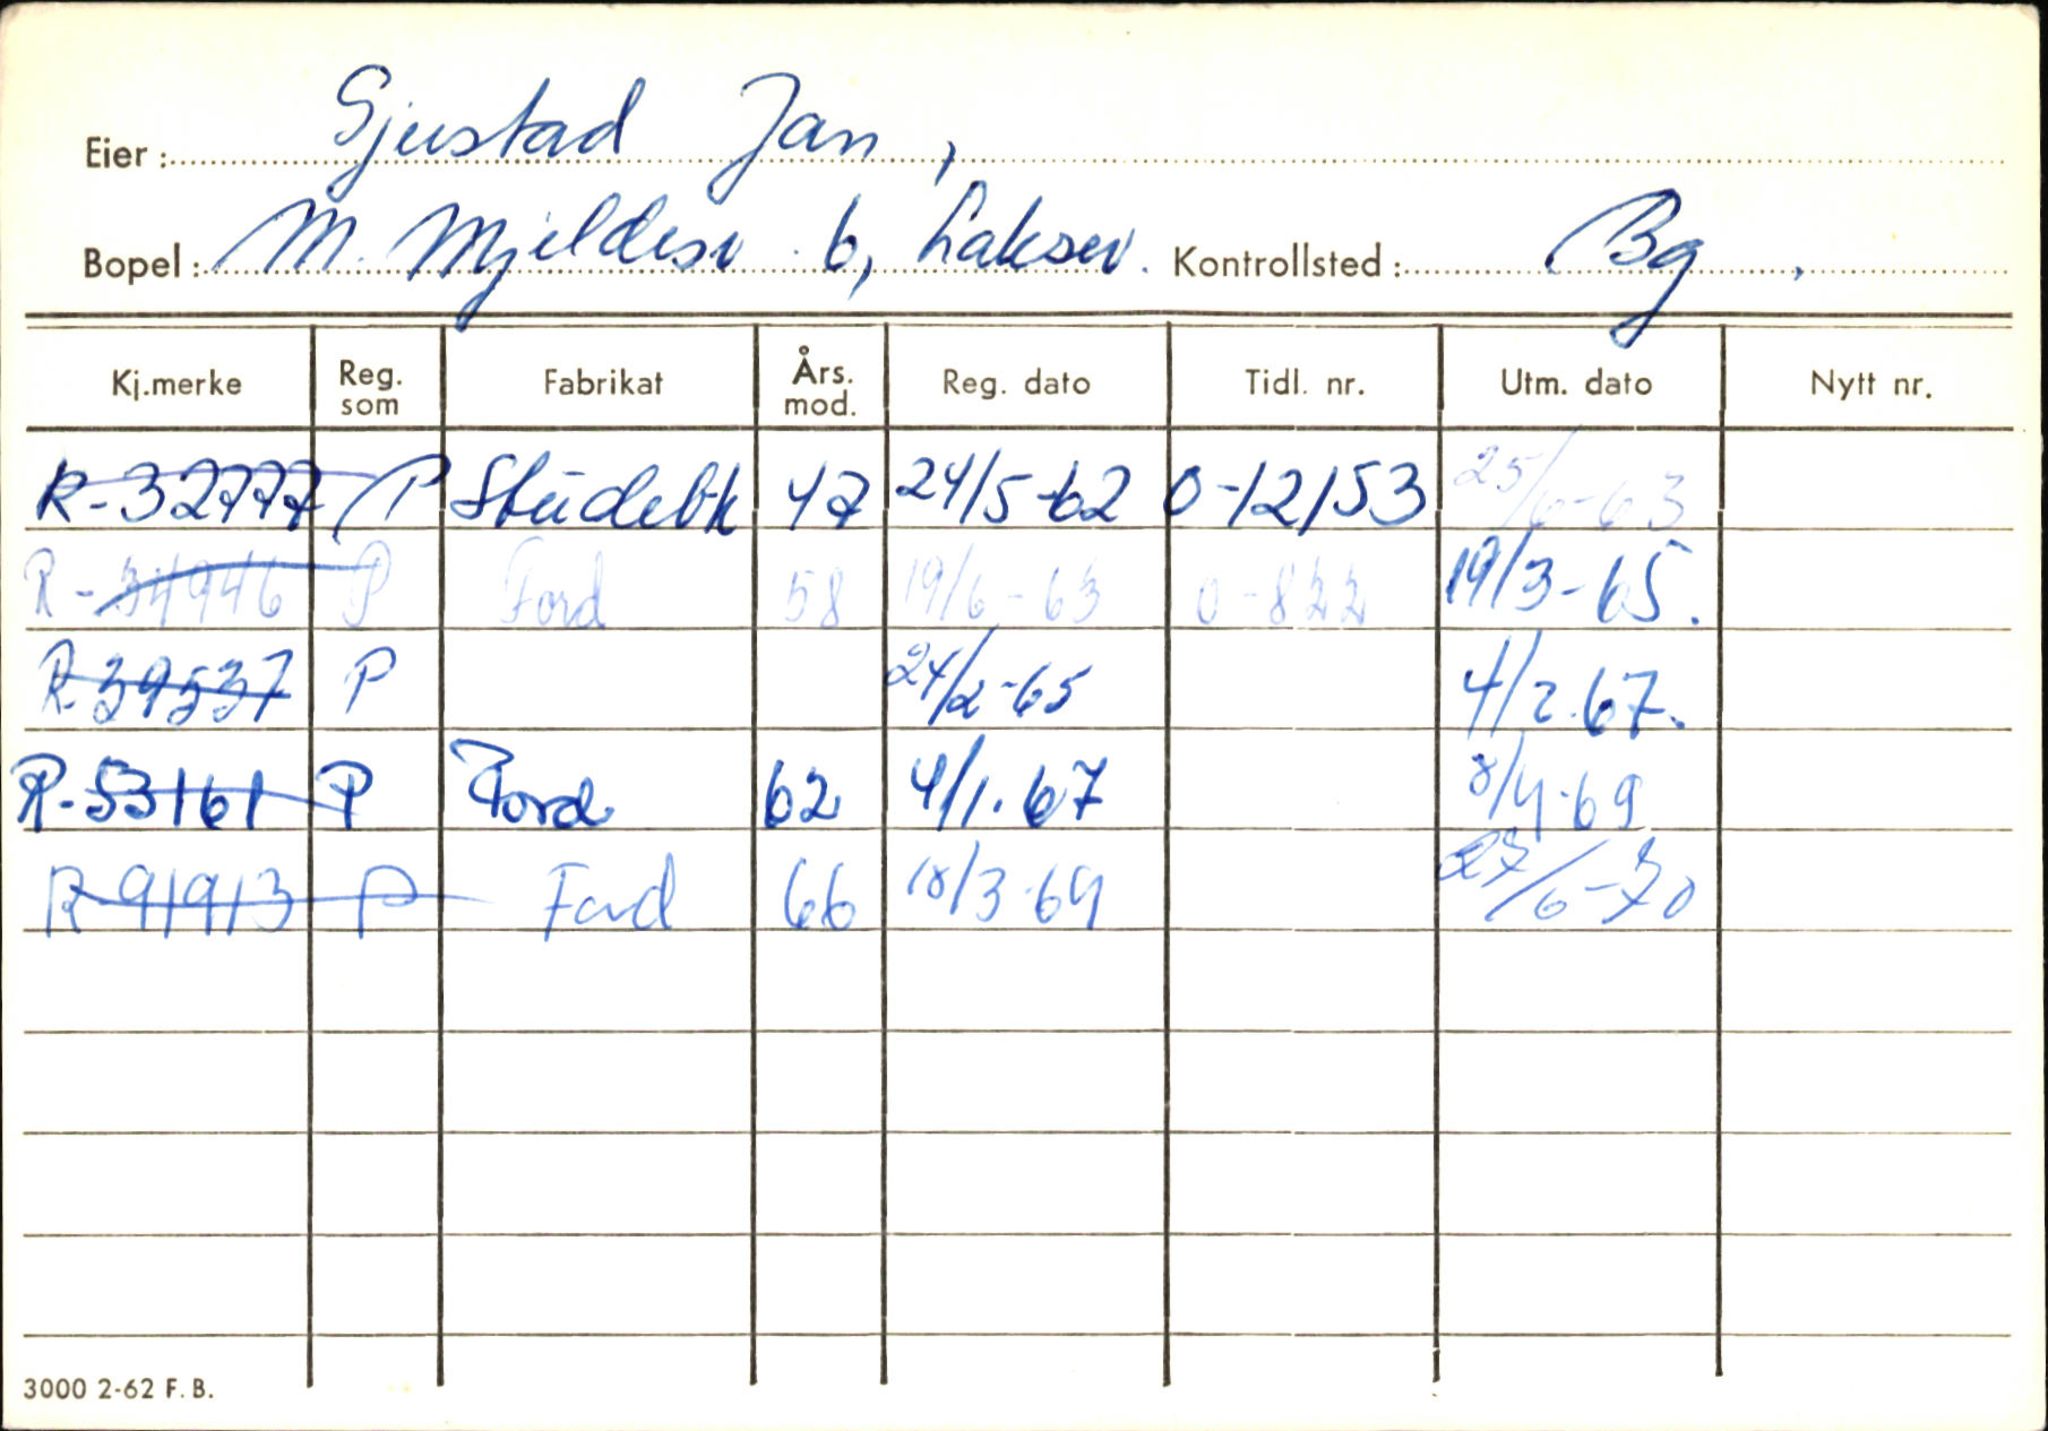 Eier: Gjestad Jan,
Bopel: M. Mjeldesv. 6, Laksev. Kontrollsted: Bg.
Kj.merke Reg. som Fabrikat Års. mod. Reg. dato Tidl. nr. Utm. dato Nytt nr.
R-32777 P Studebk 47 24/5-62 O-12153 25/6-63
R-34946 P Ford 58 19/6-63 O-822 19/3-65.
R-39537 P 24/2-65 4/2.67.
R-53161 P Ford 62 4/1.67 8/4-69
R-91913 P Ford 66 18/3-69 27/6-70
3000 2-62 F. B.